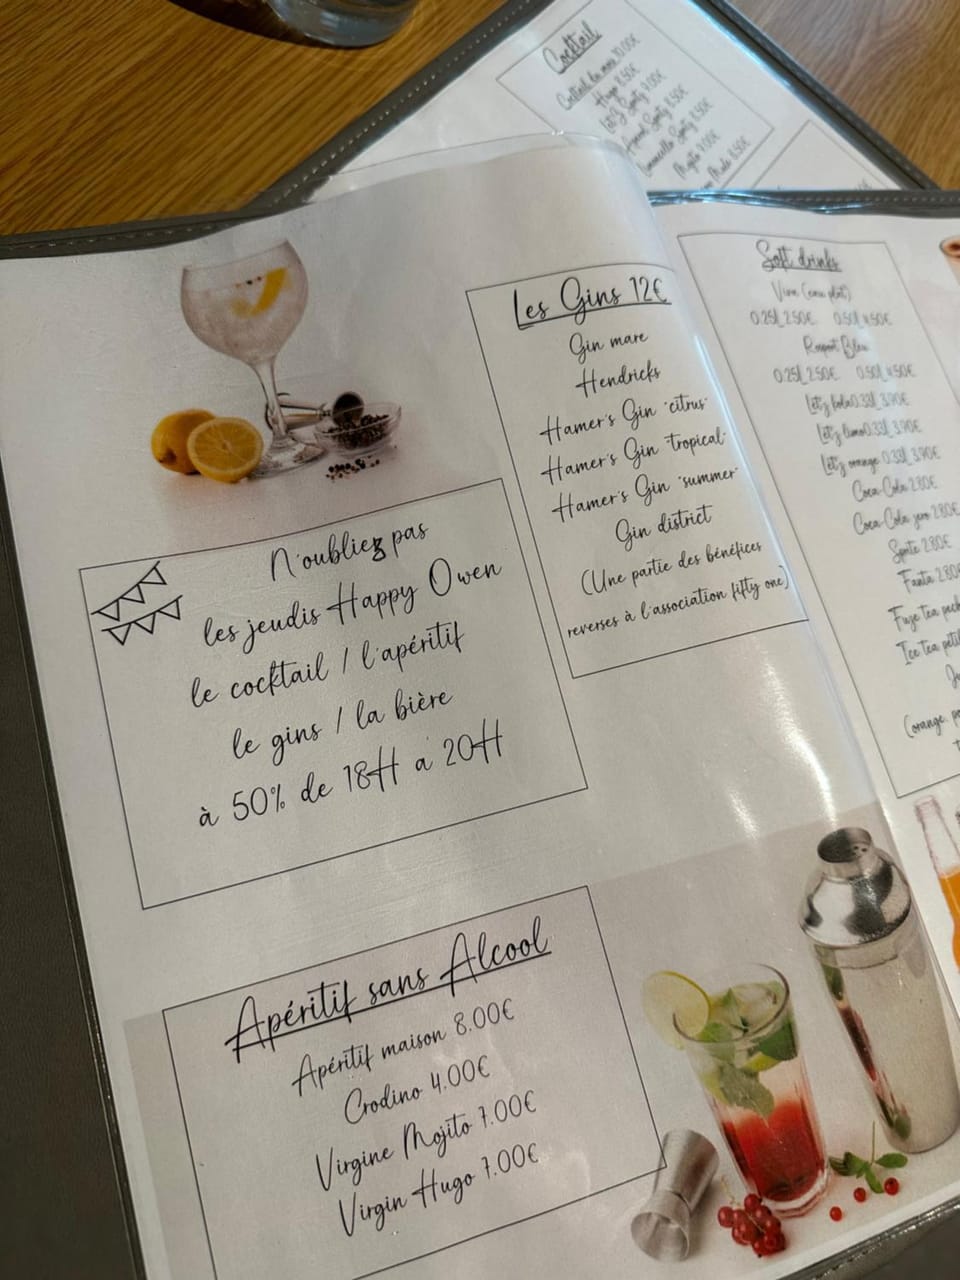 Cocktail
Cocktail du mois 10.00€
Hugo 8.50€
Let'z Spritz 9.00€
Aperol Spritz 8.50€
Limoncello Spritz 8.50€
Mojito 9.00€
Mule 8.50€
Les Gins 12€
Gin mare
Hendricks
Hamer's Gin "citrus"
Hamer's Gin "tropical"
Hamer's Gin "summer"
Gin district
(Une partie des bénéfices
reverses à l'association fifty one)
N'oubliez pas
les jeudis Happy Owen
le cocktail / l'apéritif
le gins / la bière
à 50% de 18H a 20H
Apéritif sans Alcool
Apéritif maison 8.00€
Crodino 4.00€
Virgine Mojito 7.00€
Virgin Hugo 7.00€
Soft drinks
Viva (eau plat)
0.25L 2.50€ 0.50L 4.50€
Rosport Bleu
0.25L 2.50€ 0.50L 4.50€
Let'z kola 0.33L 3.90€
Let'z limo 0.33L 3.90€
Let'z orange 0.33L 3.90€
Coca-Cola 2.80€
Coca-Cola zero 2.80€
Sprite 2.80€
Fanta 2.80€
Fuze tea
Ice tea
(orange,